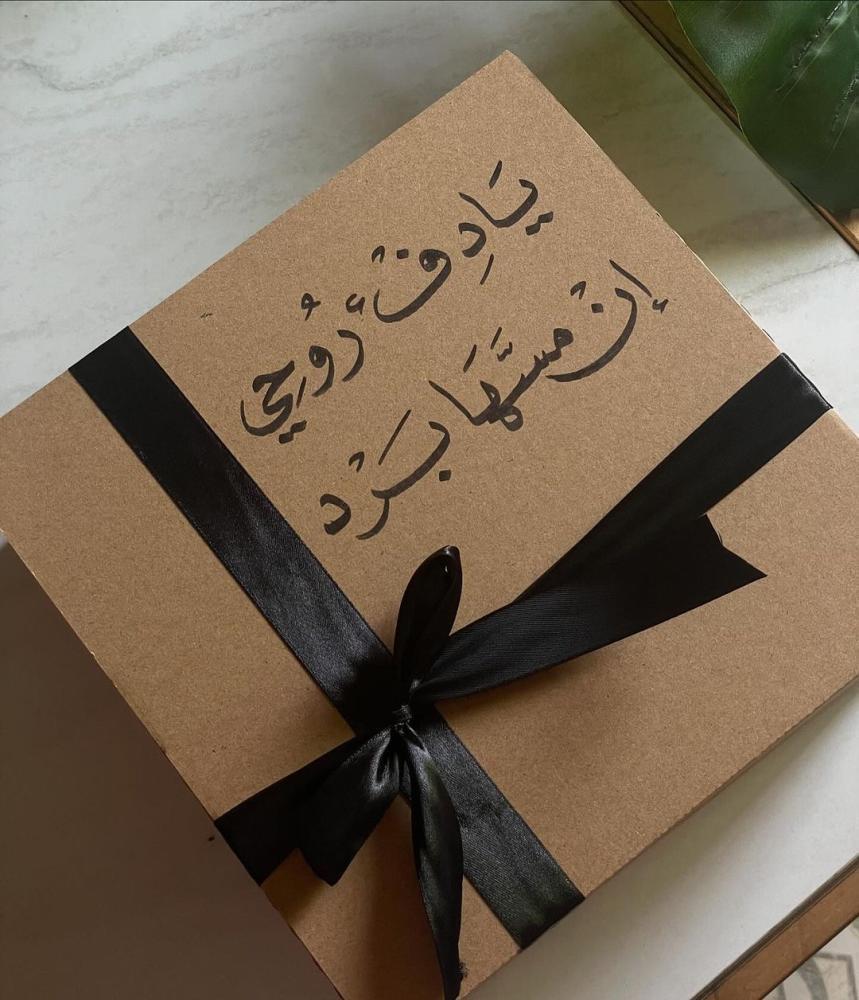 يَادِفْء رُوُحِي
إِنْ مسَّهَا بَرْد